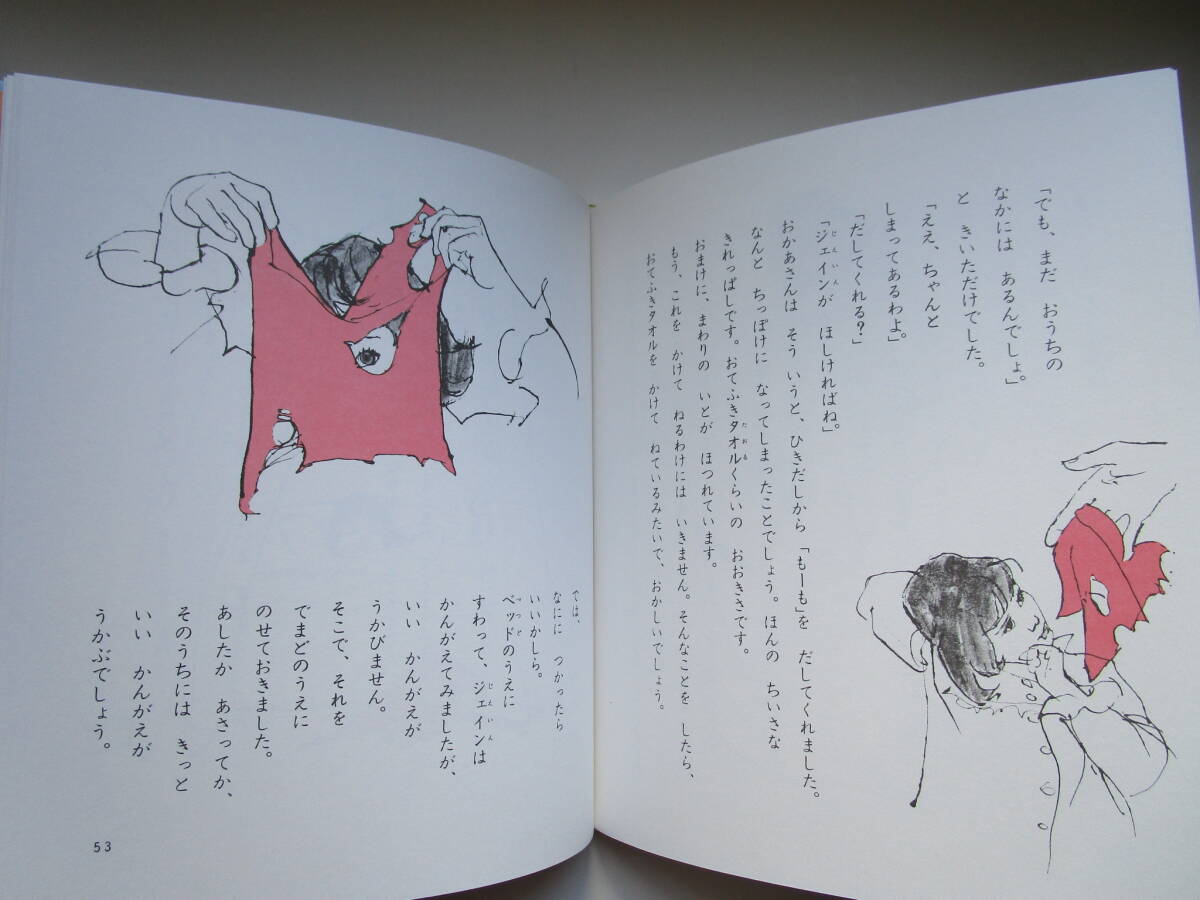 「でも、まだ おうちの
なかには あるんでしょ。」
と きいただけでした。
「ええ、ちゃんと
しまってあるわよ。」
「だしてくれる?」
「ジェインが ほしければね。」
じぇいん
おかあさんは そう いうと、ひきだしから 「もーも」を だしてくれました。
なんと ちっぽけに なってしまったことでしょう。ほんの ちいさな
きれっぱしです。おてふきタオルくらいの おおきさです。
たおる
おまけに、まわりの いとが ほつれています。
もう、これを かけて ねるわけには いきません。そんなことを したら、
おてふきタオルを かけて ねているみたいで、おかしいでしょう。
では、
なにに つかったら
いいかしら。
ベッドのうえに
べっど
すわって、ジェインは
じぇいん
かんがえてみましたが、
いい かんがえが
うかびません。
そこで、それを
でまどのうえに
のせておきました。
あしたか あさってか、
そのうちには きっと
いい かんがえが
うかぶでしょう。
53